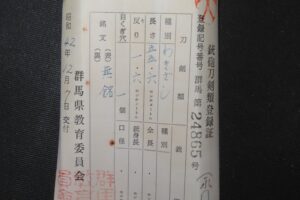 銃砲刀剣類登録証
登録記号番号 群馬 第24865号
刀剣類
種別 わきざし
長さ 五五・六
反り 一・六
目くぎ穴 一個
銘文 (表) 無銘
(裏)
種別
全長
銃身長
口径
昭和42年12月7日交付
群馬県教育委員会